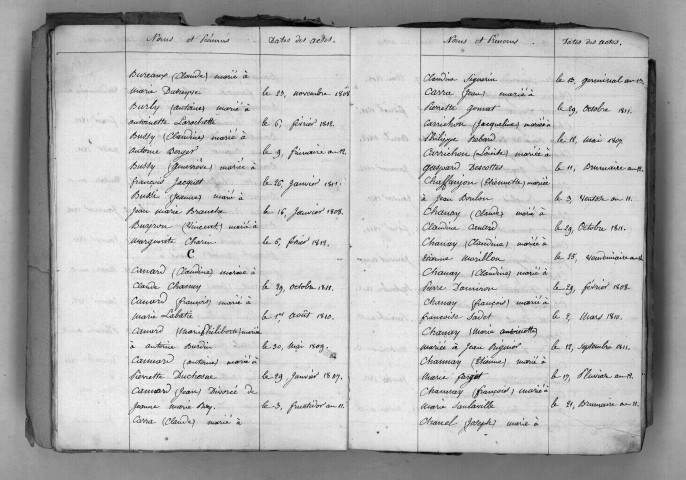 Noms et Prénoms Dates des actes.
Bureaux (Claude) marié à
Marie Dutruyse le 23, novembre 1808
Burly (antoine) marié à
antoinette Larochette le 6, février 1812.
Bussy (Claudine) mariée à
Antoine Berger le 9, frimaire an 12.
Bussy (Genevière) mariée à
françois Jacquet le 26, Janvier 1811.
(Jeanne) mariée à
Jean marie le 16, Janvier 1808.
Buyron (Vincent) marié à
marguerite Charin le 6, février 1812.
C
Canard (Claudine) mariée à
Claude Chanay le 29, octobre 1811.
Canard (françois) marié à
marie Labatie le 1er août 1810.
Canard (Marie Philiberte) mariée
à antoine Burdin le 30, Mai 1809.
Cannard (antoine) marié à
Pierrette Duchesne le 29 Janvier 1807.
Cannard (Jean) Divorcé de
Jeanne marie Bey. le 3, fructidor an 11.
Carra (Claude) marié à
Noms et Prénoms Dates des actes.
Claudine Siguerin le 13, germinal an 12.
Carra (Jean) marié à
Pierrette le 29, Octobre 1811.
Carrichon (Jacqueline) mariée à
Philippe Hobard le 18, Mai 1807.
Carrichon (Louise) mariée à
Gaspard Descottes le 11, Brumaire an 12.
Chaffanjon (Etiennette) mariée
à Jean Doulon le 3, Ventôse an 11.
Chanay (Claude) marié à
Claudine Canard le 29, Octobre 1811.
Chanay (Claudine) mariée à
Etienne Morillon le 25, Vendémiaire an
Chanay (Claudine) mariée à
Pierre Damiron le 29, février 1808.
Chanay (françois) marié à
françoise Sadet le 2, Mars 1810.
Chanay (Marie antoinette)
mariée à Jean Piguier le 12, Septembre 1811.
Chanay (Etienne) marié à
Marie Farget le 17, Pluviose an 12.
Chanay (françois) marié à
Marie Santaville le 21, Brumaire an 11.
Chanel (Joseph) marié à